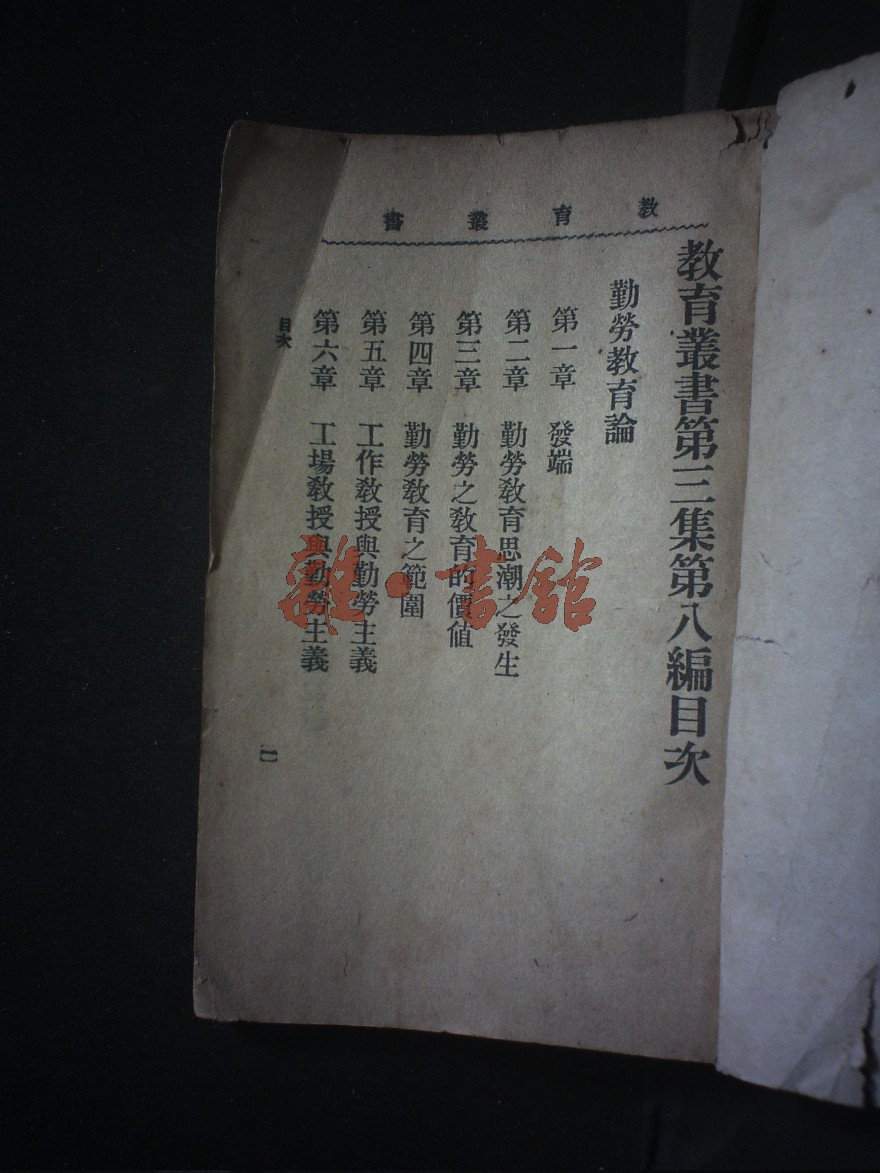 教育叢書
教育叢書第三集第八編目次
勤勞教育論
第一章 發端
第二章 勤勞教育思潮之發生
第三章 勤勞之教育的價値
第四章 勤勞教育之範圍
第五章 工作教授與勤勞主義
第六章 工場教授與勤勞主義
目次
一
雜·書館